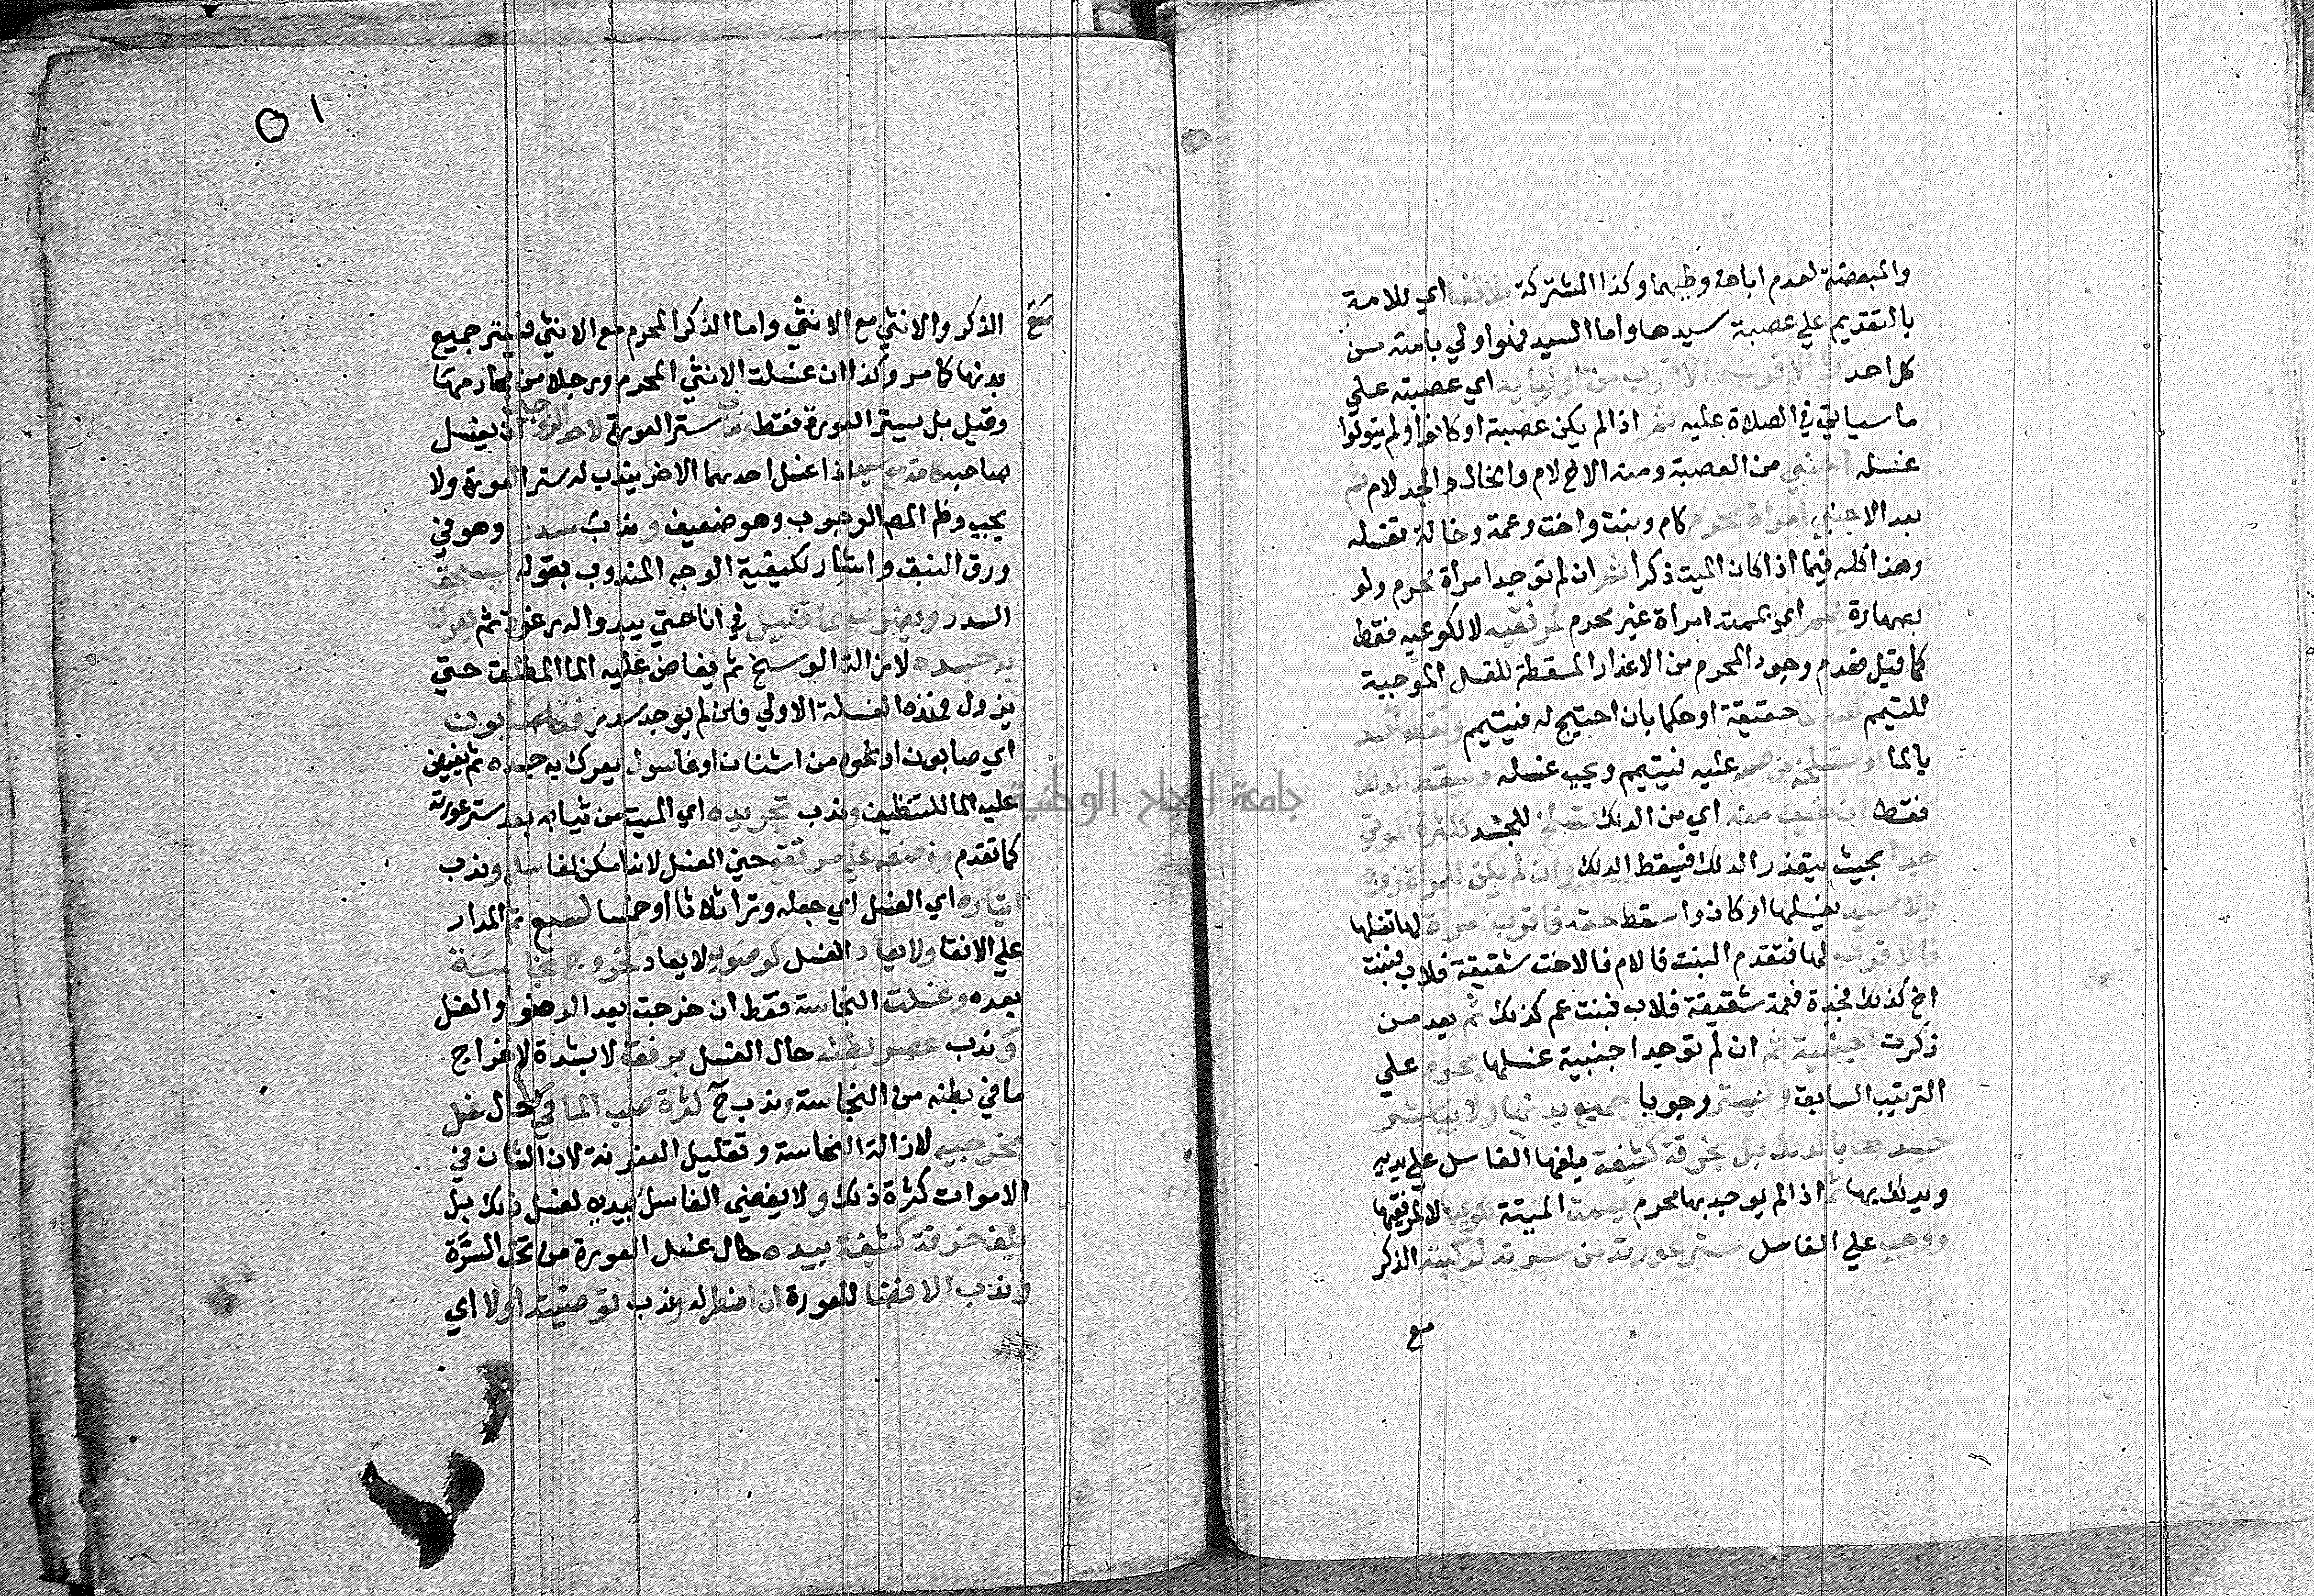 والمبعضة لعدم اباحة وطيهما وكذا المشتركة بلا قضا اي للامة
بالتقديم علي عصبة سيدها واما السيد فهو اولي بامته من
كل احد ثم الاقرب فالاقرب من اوليايه اي عصبته علي
ما سياتي في الصلاة عليه ثم اذا لم يكن عصبة او كانوا ولم يتولوا
غسله اجنبي من العصبة ومنه الاخ لام والخال والجد لام ثم
بعد الاجنبي امراة محرم كام وبنت واخت وعمة وخالة تغسله
وهذا كله فيما اذا كان الميت ذكرا ثم ان لم توجد امراة محرم ولو
بصهارة يممته اي يممت امراة غير محرم لمرفقيه لا لكوعيه فقط
كما قيل فعدم وجود المحرم من الاعذار المسقطة للغسل الموجبة
للتيمم لعدم الما حقيقة او حكما بان احتيج له فيتيمم وتقطع الجسد
بالما او تسلخه من صبه عليه فيتيمم ويجب غسله وسقط الدلك
فقط ان خيف منه اي من الدلك تسلخ للجسد لكثرة الموتي
جدا بحيث يتعذر الدلك فيسقط الدلك وان لم يكن للمراة زوج
ولا سيد يغسلها او كان واسقط حقه فاقرب امراة لها تغسلها
فالاقرب لها فتقدم البنت فالام فالاخت شقيقة فلاب فبنت
اخ كذلك فجدة فعمة شقيقة فلاب فبنت عم كذلك ثم بعد من
ذكرت اجنبية ثم ان لم توجد اجنبية غسلها محرم علي
الترتيب السابق وستر وجوبا جميع بدنها ولا يباشر
جسدها بالدلك بل بخرقة كثيفة يلفها الغاسل علي يديه
ويدلك بها ثم اذا لم يوجد بها محرم يممت الميتة لكوعيها لا لمرفقيها
ووجب علي الغاسل ستر عورته من سرته لركبته الذكر
مع
٥١
مع الذكر والانثي مع الانثي واما الذكر المحرم مع الانثي فيستر جميع
بدنها كما مر وكذا ان غسلت الانثي المحرم رجلا من محارمها
وقيل بل يستر العورة فقط وندب ستر العورة لاحد الزوجين ان يغسل
صاحبه كامة مع سيد اذا غسل احدهما الاخر يندب له ستر العورة ولا
يجب وظ المص الوجوب وهو ضعيف وندب سدر وهو في
ورق النبق واشار لكيفية الوجه المندوب بقوله يسحق
السدر ويضرب بما قليل في انا حتي يبدو اله رغوة ثم يعرك
به جسده لازالة الوسخ ثم يفاض عليه الما المطلق حتي
يزول فهذه الغسلة الاولي فان لم يوجد سدر فكصابون
اي صابون او نحوه من اشنان او غاسول يعرك به جسده ثم يفيض
عليه الما للتنظيف وندب تجريده اي الميت من ثيابه بعد ستر عورته
كما تقدم ووضعه علي مرتفع حين الغسل لانه امكن لغاسله وندب
ايتاره اي الغسل اي جعله وترا ثلاثا او خمسا لسبع ثم المدار
علي الانقا ولا يعاد الغسل كوضويه لا يعاد لخروج نجاسة
بعده وغسلت النجاسة فقط ان خرجت بعد الوضو او الغسل
وندب عصر بطنه حال الغسل برفق لا بشدة لاخراج
ما في بطنه من النجاسة وندب ح كثرة صب الما في حال غسل
مخرجيه لازالة النجاسة وتقليل العفونة لان الشان في
الاموات كثرة ذلك ولا يفضي الغاسل بيديه لغسل ذلك بل
يلف خرقة كثيفة بيده حال غسل العورة من تحت السرة
وندب الافضا للعورة ان اضطر له وندب توضيته اولا اي
جامعة النجاح الوطنية